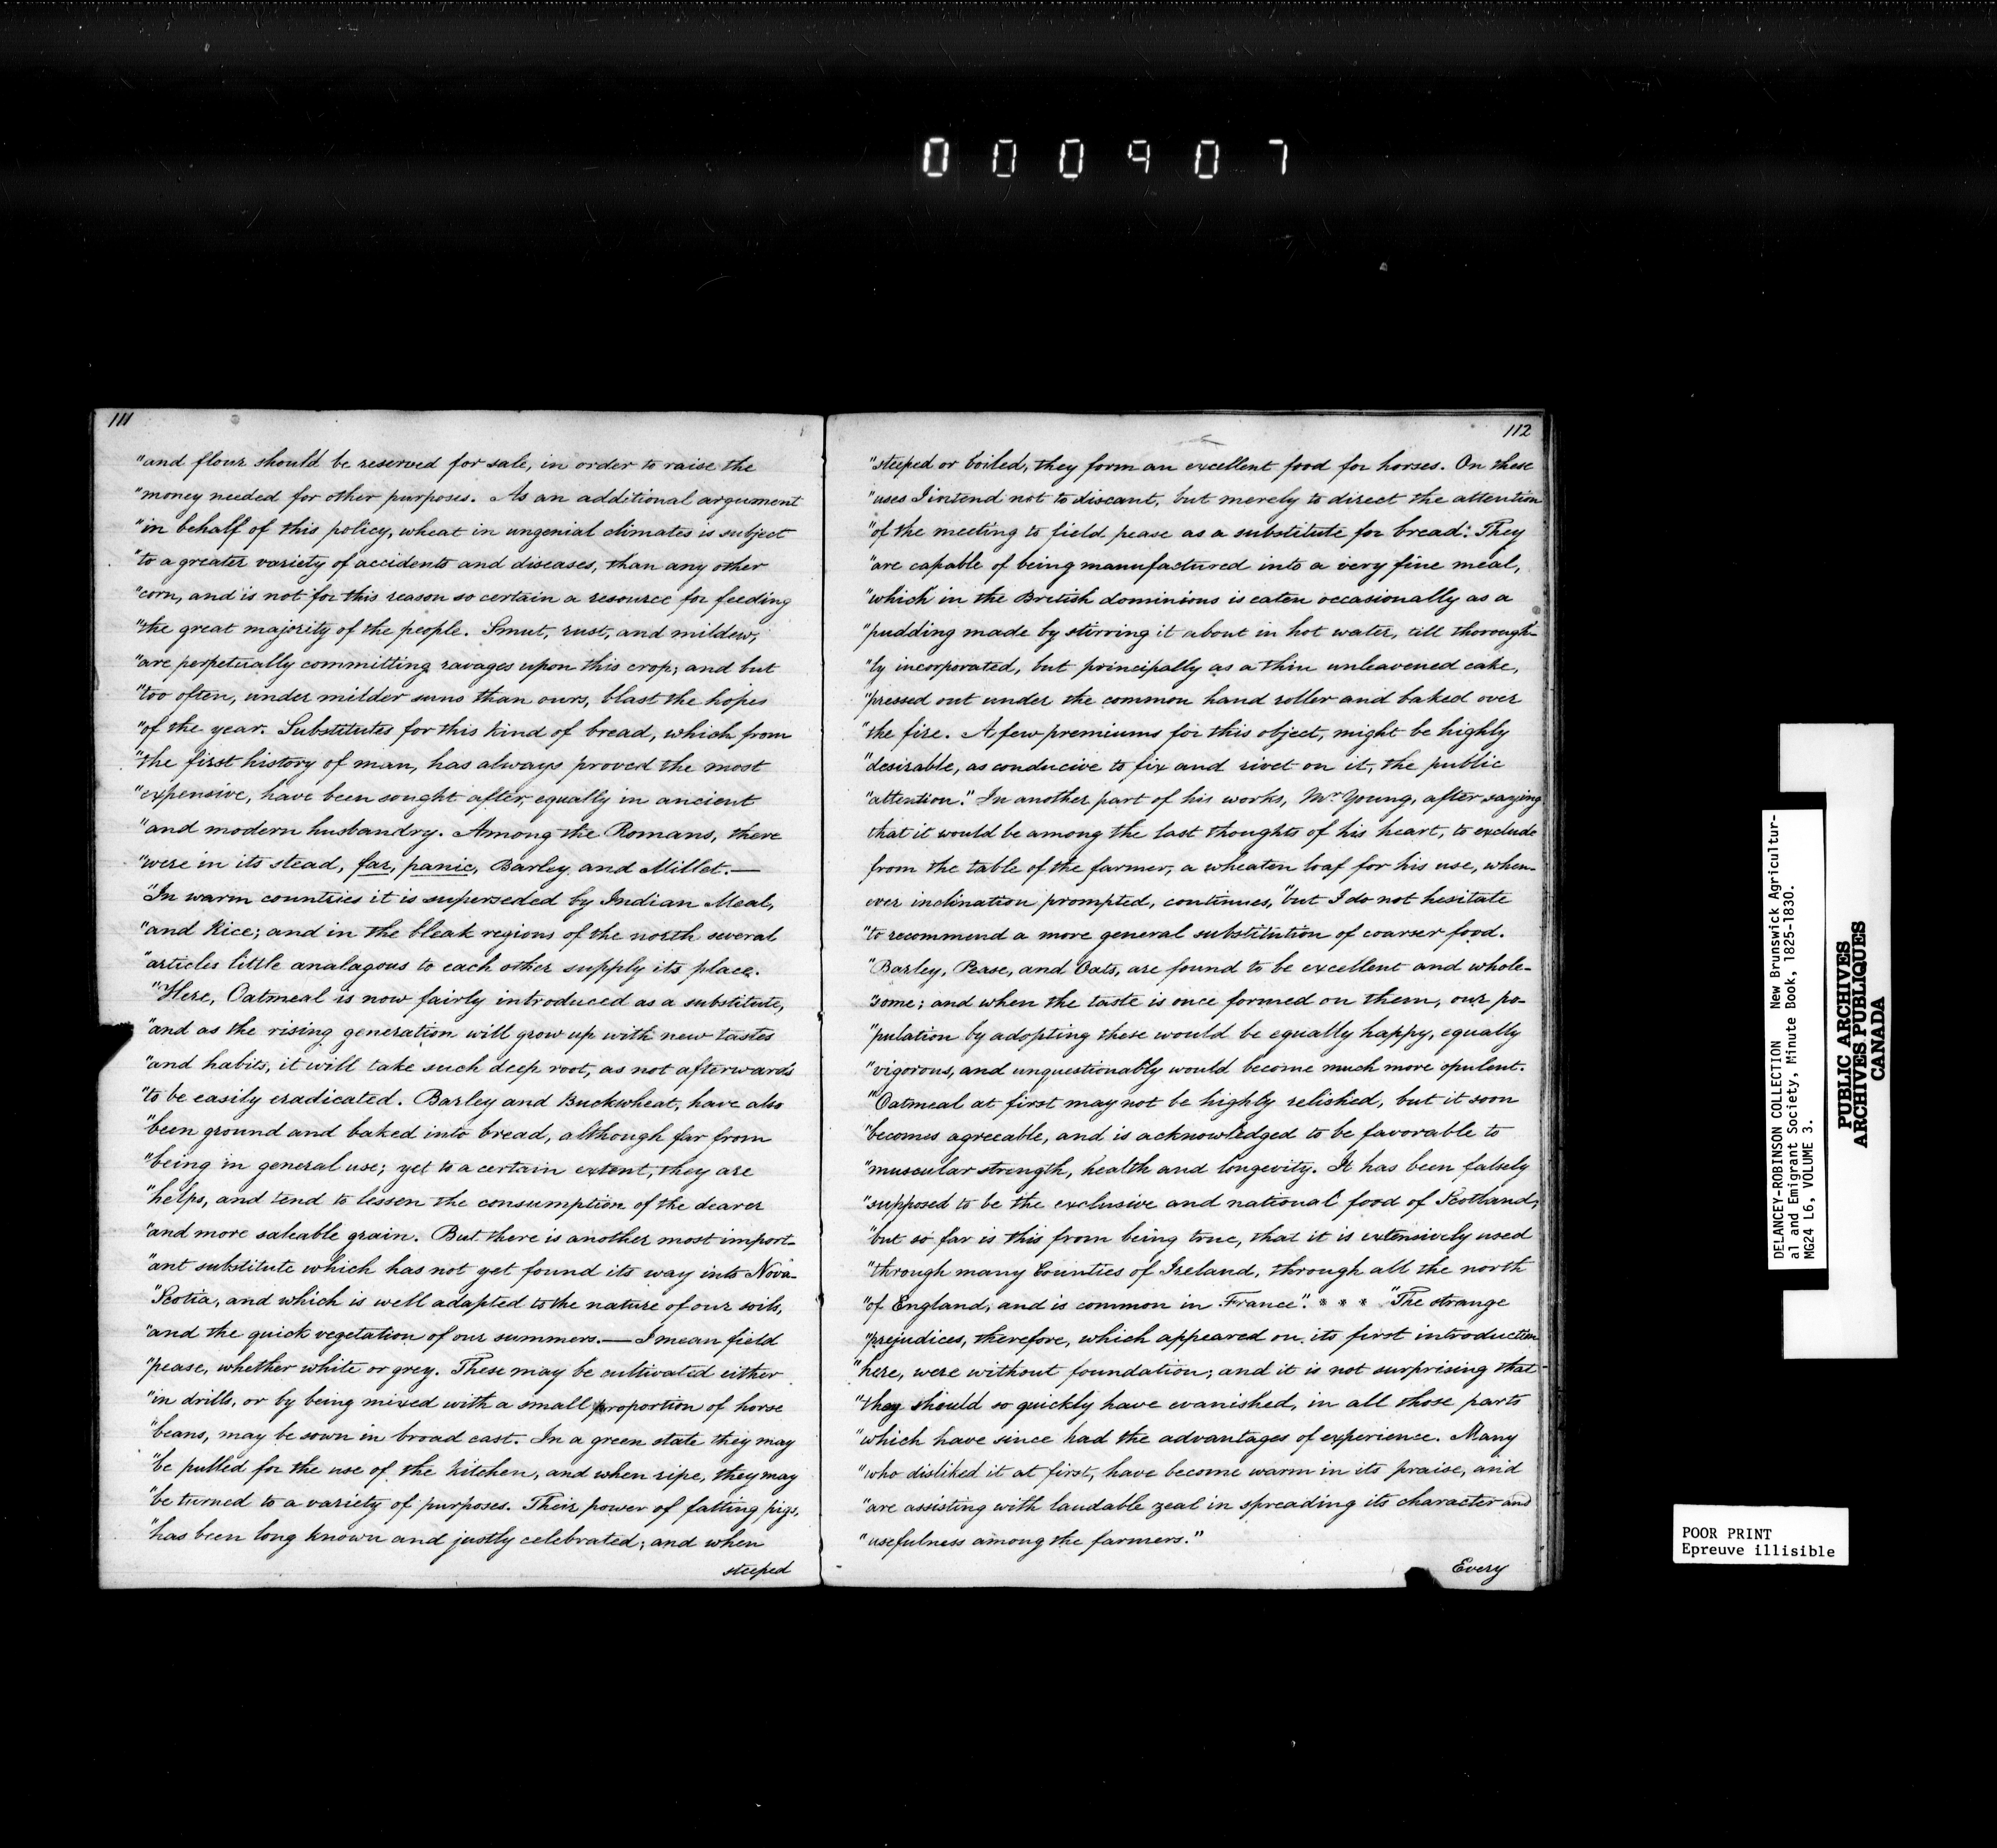 000907
111
"and flour should be reserved for sale, in order to raise the
"money needed for other purposes. As an additional argument
"in behalf of this policy, wheat in ungenial climates is subject
"to a greater variety of accidents and diseases, than any other
"corn, and is not for this reason so certain a resource for feeding
"the great majority of the people. Smut, rust, and mildew,
"are perpetually committing ravages upon this crop; and but
"too often, under milder suns than ours, blast the hopes
"of the year. Substitutes for this kind of bread, which from
"the first history of man, has always proved the most
"expensive, have been sought after, equally in ancient
"and modern husbandry. Among the Romans, there
"were in its stead, far, panic, Barley, and Millet.—
"In warm countries it is superseded by Indian Meal,
"and Rice; and in the bleak regions of the north several
"articles little analagous to each other supply its place.
"Here, Oatmeal is now fairly introduced as a substitute,
"and as the rising generation will grow up with new tastes
"and habits, it will take such deep root, as not afterwards
"to be easily eradicated. Barley and Buckwheat, have also
"been ground and baked into bread, although far from
"being in general use; yet to a certain extent, they are
"helps, and tend to lessen the consumption of the dearer
"and more saleable grain. But there is another most import-
"ant substitute which has not yet found its way into Nova-
"Scotia, and which is well adapted to the nature of our soils,
"and the quick vegetation of our summers.— I mean field
"pease, whether white or grey. These may be cultivated either
"in drills, or by being mixed with a small proportion of horse
"beans, may be sown in broad cast. In a green state they may
"be pulled for the use of the kitchen, and when ripe, they may
"be turned to a variety of purposes. Their power of fatting pigs,
"has been long known and justly celebrated; and when
steeped
112
"steeped or boiled, they form an excellent food for horses. On these
"uses I intend not to discant, but merely to direct the attention
"of the meeting to field pease as a substitute for bread. They
"are capable of being manufactured into a very fine meal,
"which in the British dominions is eaten occasionally as a
"pudding made by stirring it about in hot water, till thorough-
"ly incorporated, but principally as a thin unleavened cake,
"pressed out under the common hand roller and baked over
"the fire. A few premiums for this object, might be highly
"desirable, as conducive to fix and rivet on it, the public
"attention." In another part of his works, Mr Young, after saying
that it would be among the last thoughts of his heart, to exclude
from the table of the farmer, a wheaten loaf for his use, when-
ever inclination prompted, continues, "but I do not hesitate
"to recommend a more general substitution of coarser food.
"Barley, Pease, and Oats, are found to be excellent and whole-
"some; and when the taste is once formed on them, our po-
"pulation by adopting these would be equally happy, equally
"vigorous, and unquestionably would become much more opulent.
"Oatmeal at first may not be highly relished, but it soon
"becomes agreeable, and is acknowledged to be favorable to
"muscular strength, health and longevity. It has been falsely
"supposed to be the exclusive and national food of Scotland,
"but so far is this from being true, that it is extensively used
"through many Counties of Ireland, through all the north
"of England, and is common in France". * * * "The strange
"prejudices, therefore, which appeared on its first introduction
"here, were without foundation; and it is not surprising that
"they should so quickly have evanished, in all those parts
"which have since had the advantages of experience. Many
"who disliked it at first, have become warm in its praise, and
"are assisting with laudable zeal in spreading its character and
"usefulness among the farmers."
Every
DELANCEY-ROBINSON COLLECTION New Brunswick Agricultur-
al and Emigrant Society, Minute Book, 1825-1830.
MG24 L6, VOLUME 3.
PUBLIC ARCHIVES
ARCHIVES PUBLIQUES
CANADA
POOR PRINT
Epreuve illisible